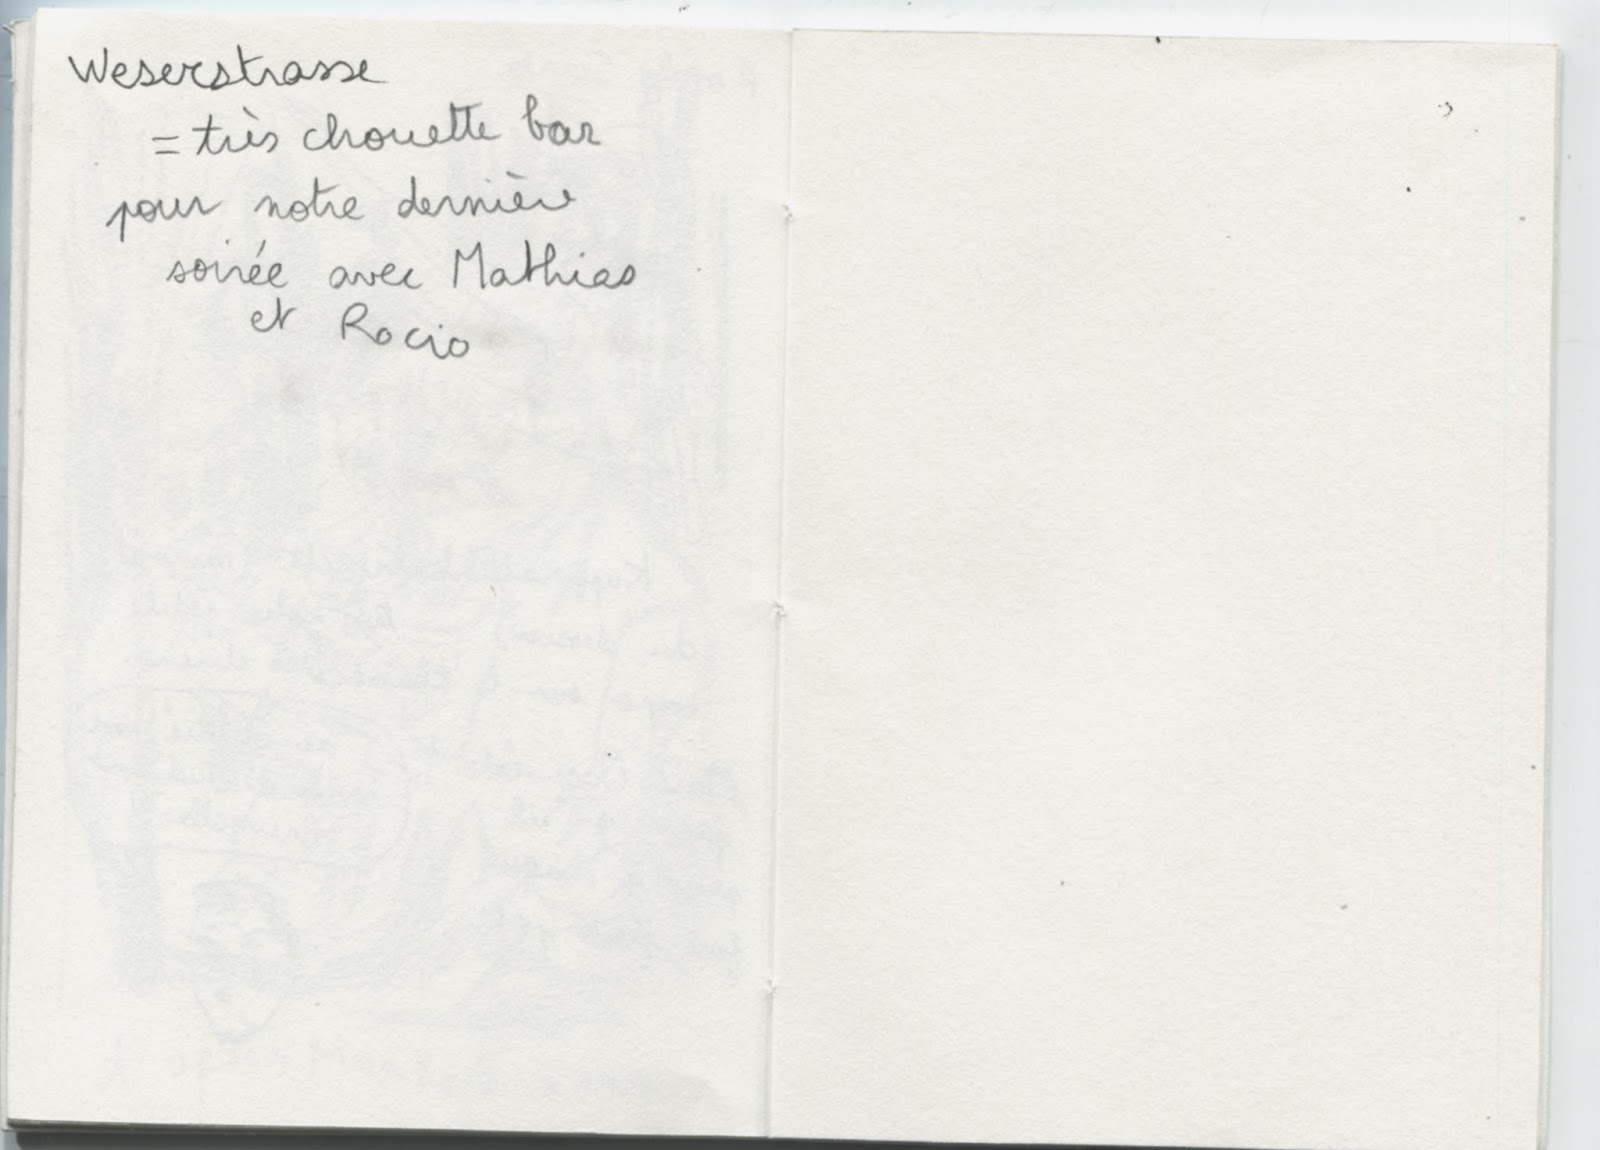 Weserstrasse
= très chouette bar
pour notre dernière
soirée avec Mathias
et Rocio